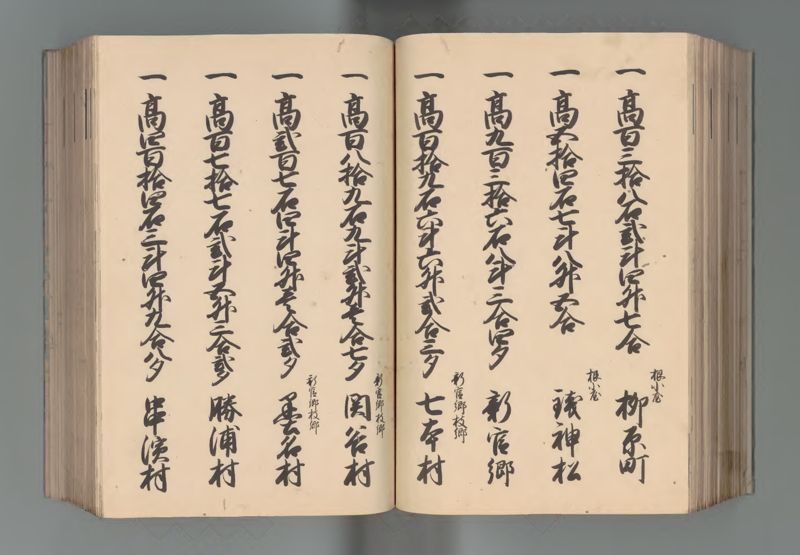 一 高百三拾八石弐斗四升七合 根小屋 柳原町
一 高五拾四石七斗八升五合 根小屋 鉄神松
一 高九百三拾六石八斗三合四夕 新官郷
一 高百拾九石六斗六升弐合三夕 新官郷枝郷 七本村
一 高百八拾九石九斗弐升壱合七夕 新官郷枝郷 関谷村
一 高弐百七石四斗四升壱合弐夕 新官郷枝郷 墨名村
一 高百七拾七石弐斗五升三合弐夕 勝浦村
一 高四百拾四石三斗四升九合八夕 串濱村